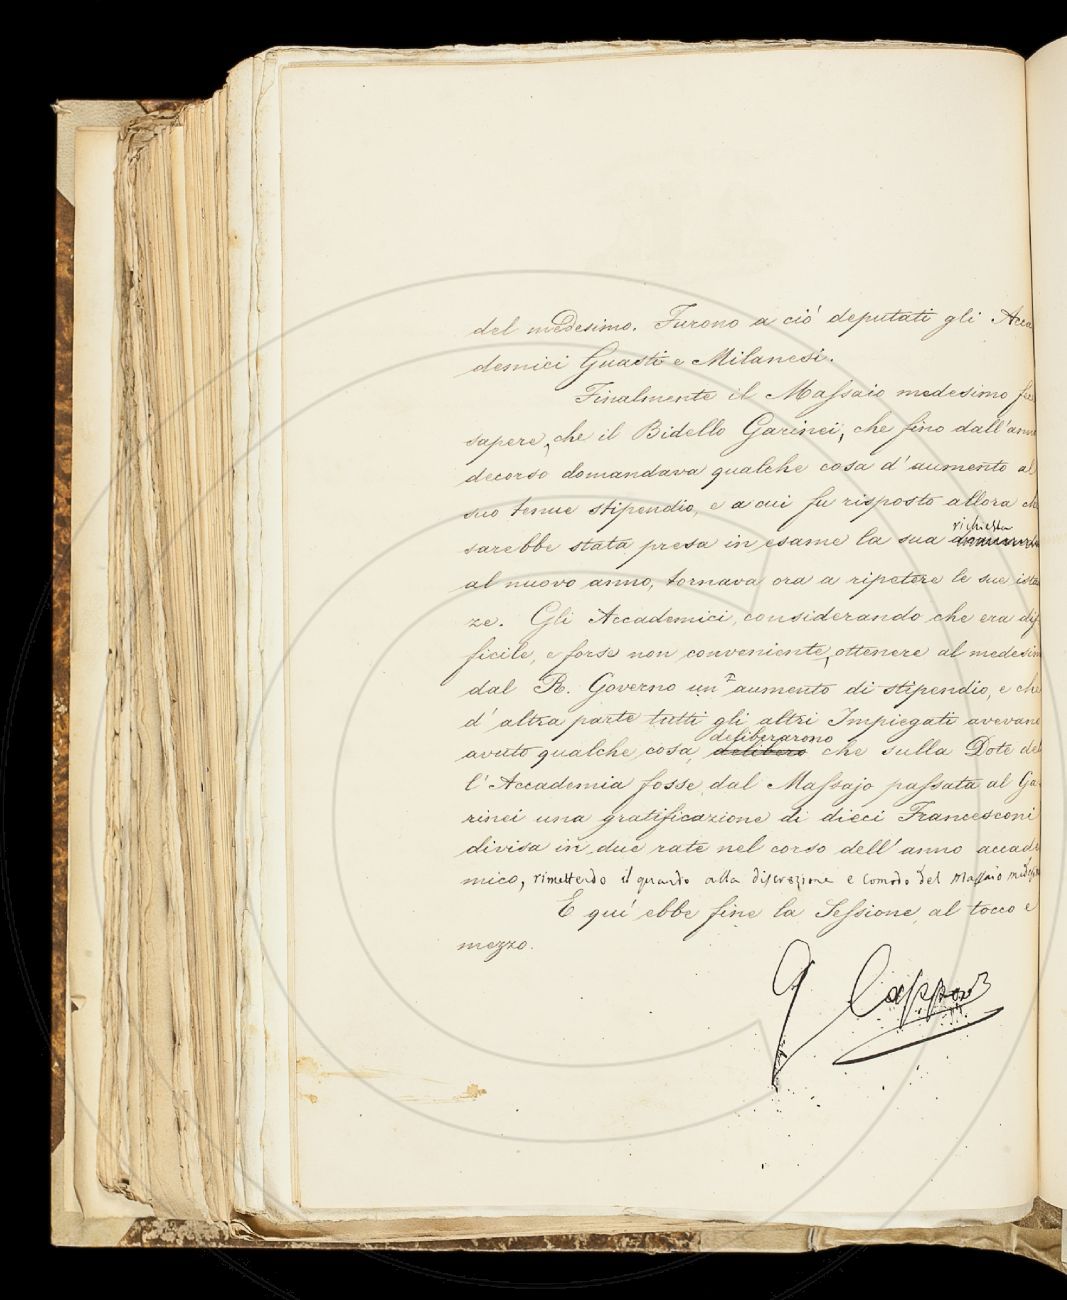 del medesimo. Furono a ciò deputati gli Acca
demici Guasti e Milanesi.
Finalmente il Massaio medesimo fece
sapere, che il Bidello Garinei, che fino dall'anno
decorso domandava qualche cosa d'aumento al
suo tenue stipendio, e a cui fu risposto allora che
richiesta
sarebbe stata presa in esame la sua
al nuovo anno, tornava ora a ripetere le sue istan
ze. Gli Accademici, considerando che era dif
ficile, e forse non conveniente, ottenere al medesimo
dal R. Governo un aumento di stipendio, e che
d'altra parte tutti gli altri Impiegati avevano
deliberarono
avuto qualche cosa, deliberò che sulla Dote del
l'Accademia fosse dal Massajo passata al Ga
rinei una gratificazione di dieci Francesconi
divisa in due rate nel corso dell'anno accade
mico, rimettendo il quando alla discrezione e comodo del Massaio medesimo
E quì ebbe fine la Sessione, al tocco e
mezzo.
G Capponi